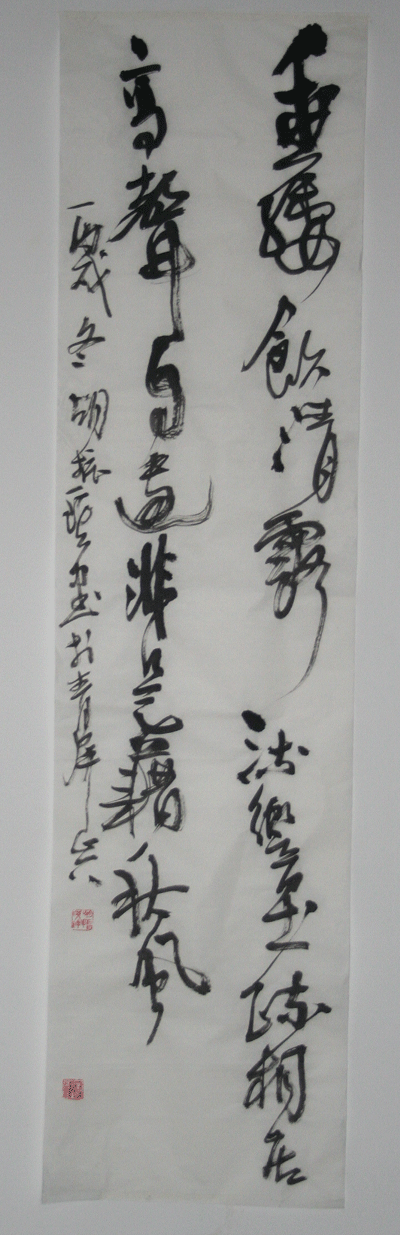 垂緌飲清露流響出疏桐居
高聲自遠非是藉秋風
丙戌冬胡振書於青